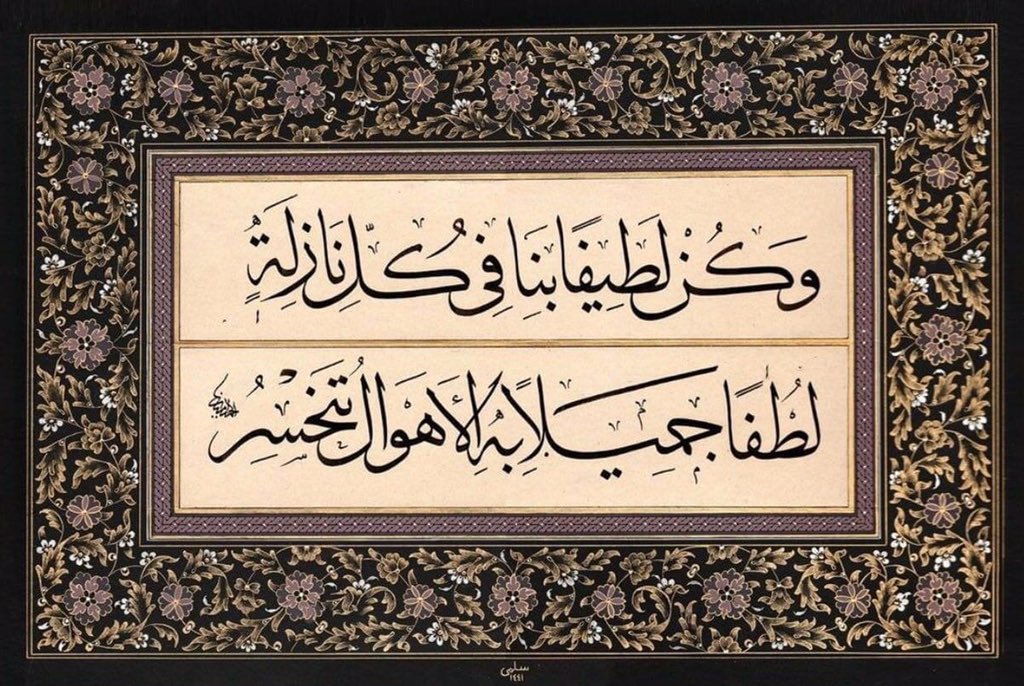 وَكُنْ لَطِيفًا بِنَا فِي كُلِّ نَازِلَةٍ
لُطْفًا جَمِيلًا بِهِ الأَهْوَالُ تَنْحَسِرُ
سلمى
١٤٤١